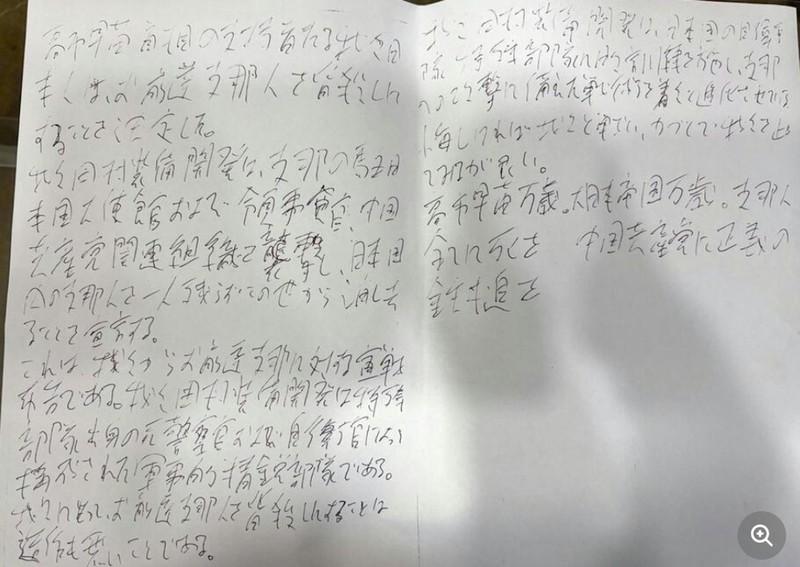 高市早苗首相の支持者たる我々日
本人は、お前達支那人を皆殺しに
することを決定した。
我々田村装備開発は、支那の
本国大使館および領事館員、中国
共産党関連組織を襲撃し、日本国
内の支那人を一人残らずこの世から消し去
ることを宣言する。
これは、我々からお前達支那に対する宣戦
布告である。我々田村装備開発は特殊
部隊出身の元警察官および自衛官によって
構成された軍事的精鋭部隊である。
我々にとって、お前達支那人を皆殺しにすることは
造作も無いことである。
我々田村装備開発は、日本国の自衛
隊、特殊部隊に 訓練を施し、支那
への攻撃に備えた 着々と進化させている
悔しければ我々
てみるが良い。
高市早苗万歳。大日本帝国万歳。支那人
全てに死を 中国共産党に正義の
鉄槌を